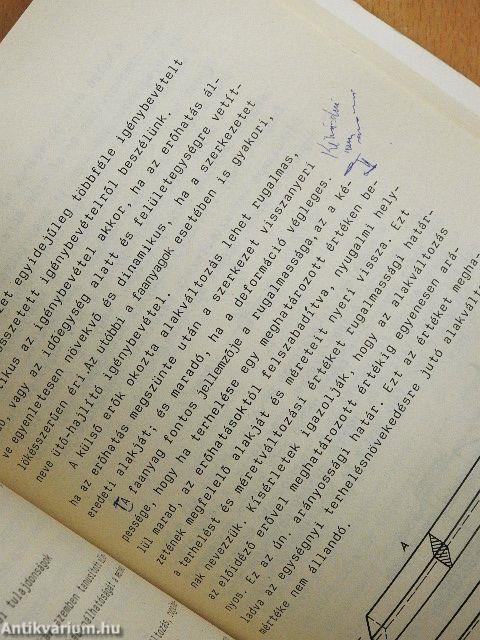 et egyidejűleg többféle igénybevételt
sszetett igénybevételről beszélünk.
tikus az igénybevétel akkor, ha az erőhatás ál-
vagy az időegység alatt és felületegységre vetít-
ve egyenletesen növekvő és dinamikus, ha a szerkezetet
lökésszerűen éri. Az utóbbi a faanyagok esetében is gyakori,
neve ütő-hajlító igénybevétel.
A külső erők okozta alakváltozás lehet rugalmas,
ha az erőhatás megszünte után a szerkezet visszanyeri
eredeti alakját; és maradó, ha a deformáció végleges.
A faanyag fontos jellemzője a rugalmassága, az a ké-
pessége, hogy ha terhelése egy meghatározott értéken be-
lül marad, az erőhatásoktól felszabadítva, nyugalmi hely-
zetének megfelelő alakját és méreteit nyeri vissza. Ezt
a terhelést és méretváltozási értéket rugalmassági határ-
nak nevezzük. Kísérletek igazolják, hogy az alakváltozás
az előidéző erővel meghatározott értékig egyenesen ará-
nyos. Ez az ún. arányossági határ. Ezt az értéket megha-
ladva az egységnyi terhelésnövekedésre jutó alakvált
mértéke nem állandó.
A
l tulajdonságok
szemben
Antikvarium.hu